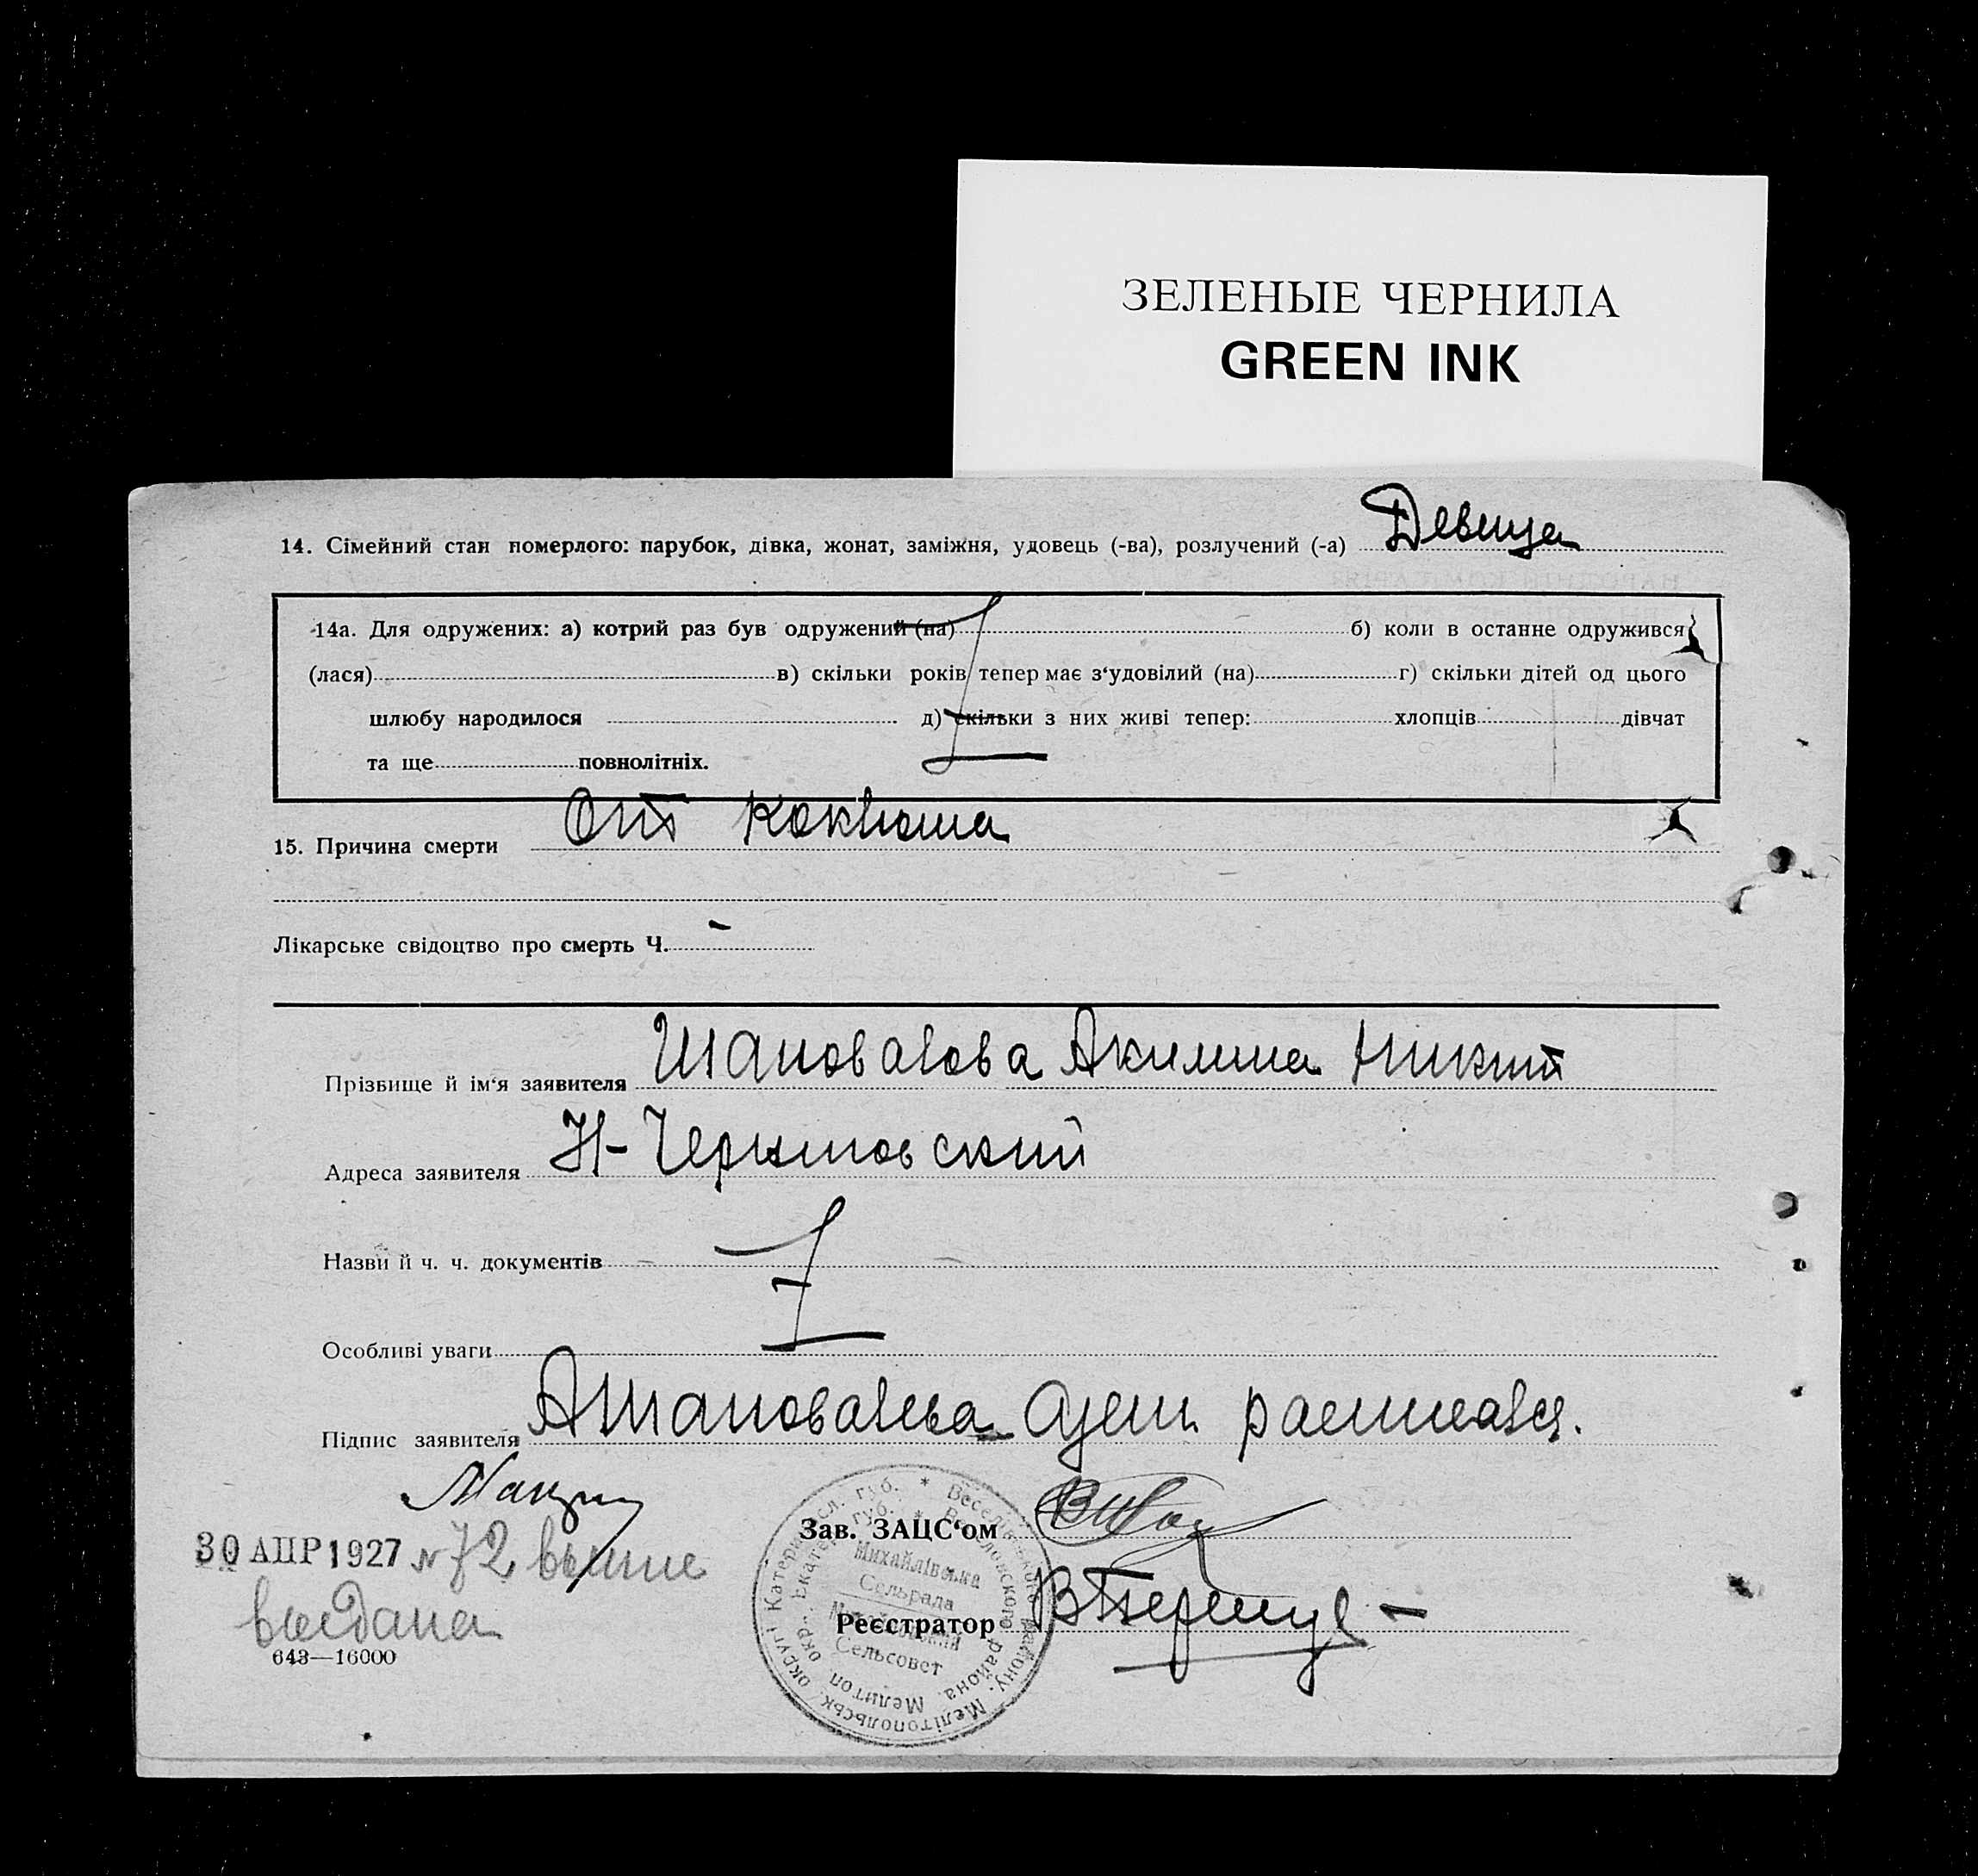 ЗЕЛЕНЫЕ ЧЕРНИЛА
GREEN INK
14. Сімейний стан померлого: парубок, дівка, жонат, заміжня, удовець (-ва), розлучений (-а) Девица
14а. Для одружених: а) котрий раз був одружений (на) б) коли в останне одружився
(лася) в) скільки років тепер має з‘удовілий (на) г) скільки дітей од цього
шлюбу народилося д) скільки з них живі тепер: хлопців дівчат
та ще повнолітніх.
15. Причина смерти От коклюша
Лікарське свідоцтво про смерть Ч. -
Прізбище й ім‘я заявителя Шаповалова Акилина Никит
Адреса заявителя Н-
Назви й ч. ч. документів
Особливі уваги
Підпис заявителя
Зав. ЗАЦС‘ом
30 АПР 1927 № 72
выдана
Реєстратор
643—16000
Катериносл. губ. * Веселівського району, Мелітопольськ. округі
Екатер. губ. * Веселовского района, Мелитоп. окр.
Михайлівська
Сельрада
Михайловский
Сельсовет